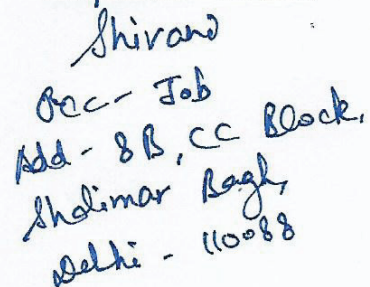 Shivani
Occ- Job
Add - 8B, CC Block,
Shalimar Bagh,
Delhi - 110088